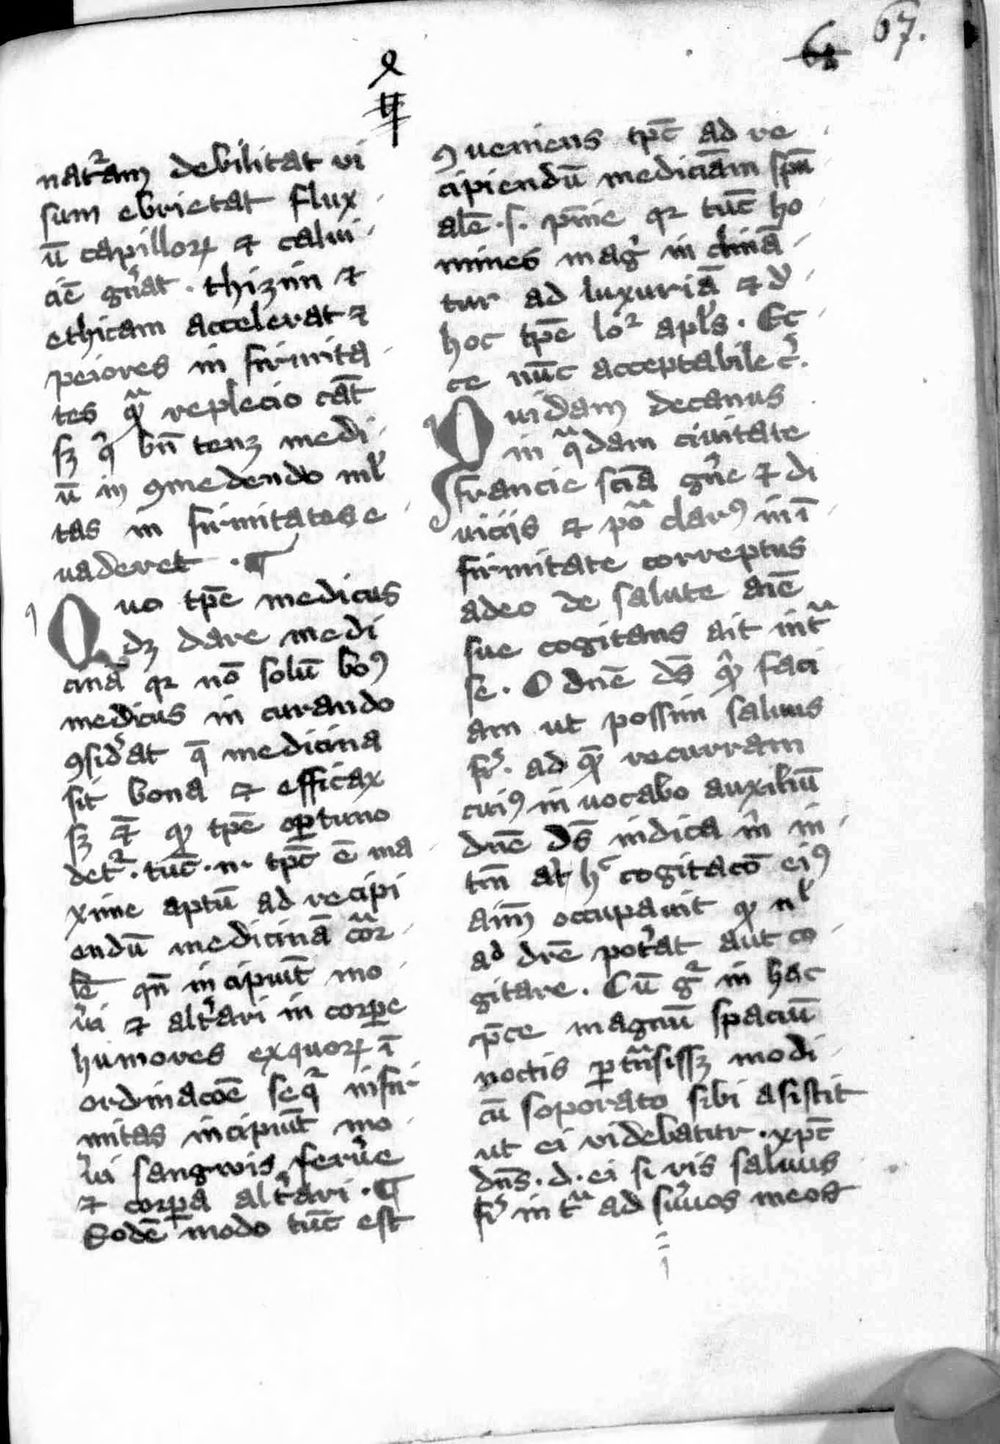 67.
nat᷑am debilitat vi
sum ebrietat flux
ū capilloꝝ ⁊ calui
ciē gn̄at · thizim ⁊
ethicam accelerat ⁊
peiores in firmita
tes qᷓꝫ replecio cāt
sꝫ bn̄ tenꝫ medi
ū in ꝯmedendo
tas in firmitates e
vaderet · ¶
Quo tꝑe medicus
dꝫ dare medi
cinā qꝛ nō solū boꝰ
medicus in curando
ꝯsid̾at q̄ medicina
sit bona ⁊ efficax
sꝫ tꝑe oꝑtuno
det᷑ · tūc · n · tꝑc̄ ē ma
xime aptū ad recipi
endū medicinā
qn̄ incipiūt mo
v̾i ⁊ alt̾ari in corꝑe
humores ex quoꝝ ī
ordinacōe seq᷑ infir
mitas incipiūt mo
v̾i sangwis ferv̾e
⁊ corꝑa alt̾ari · ¶
Eodē modo tūc est
ꝯueniens tꝑc̄ ad re
cipiendū medicīam spū
alē · s · pn̄ie qꝛ tūc ho
mines mag̾ in clinā
tur ad luxuriā ⁊ d̾
hoc tꝑe lo᷑ apl̄s · Ec
ce nūc acceptabile
Quidam decanus
in qᷓdam ciuitate
francie sciā gn̄e ⁊ di
viciis ⁊ clarꝰ in ī
firmitate correptus
adeo de salute aīe
sue cogitans ait int᷑
se · O dn̄e ds̄ faci
am ut possim saluus
ad quē recurram
cuiꝰ in vocabo auxiliū
dn̄e ds̄ indica m̄ in
tm̄ at hͨ cogitacō eiꝰ
aīm occupauit
ad dr̄e pot̾at aut co
gitare · Cū g᷑ in hac
p̄ce magnū spaciū
noctis ꝑtn̄sissꝫ modi
cū soporato sibi asistit
ut ei videbatur · xpc̄
dn̄s · d · ei si vis saluus
in t᷑ ad s̾uos meos